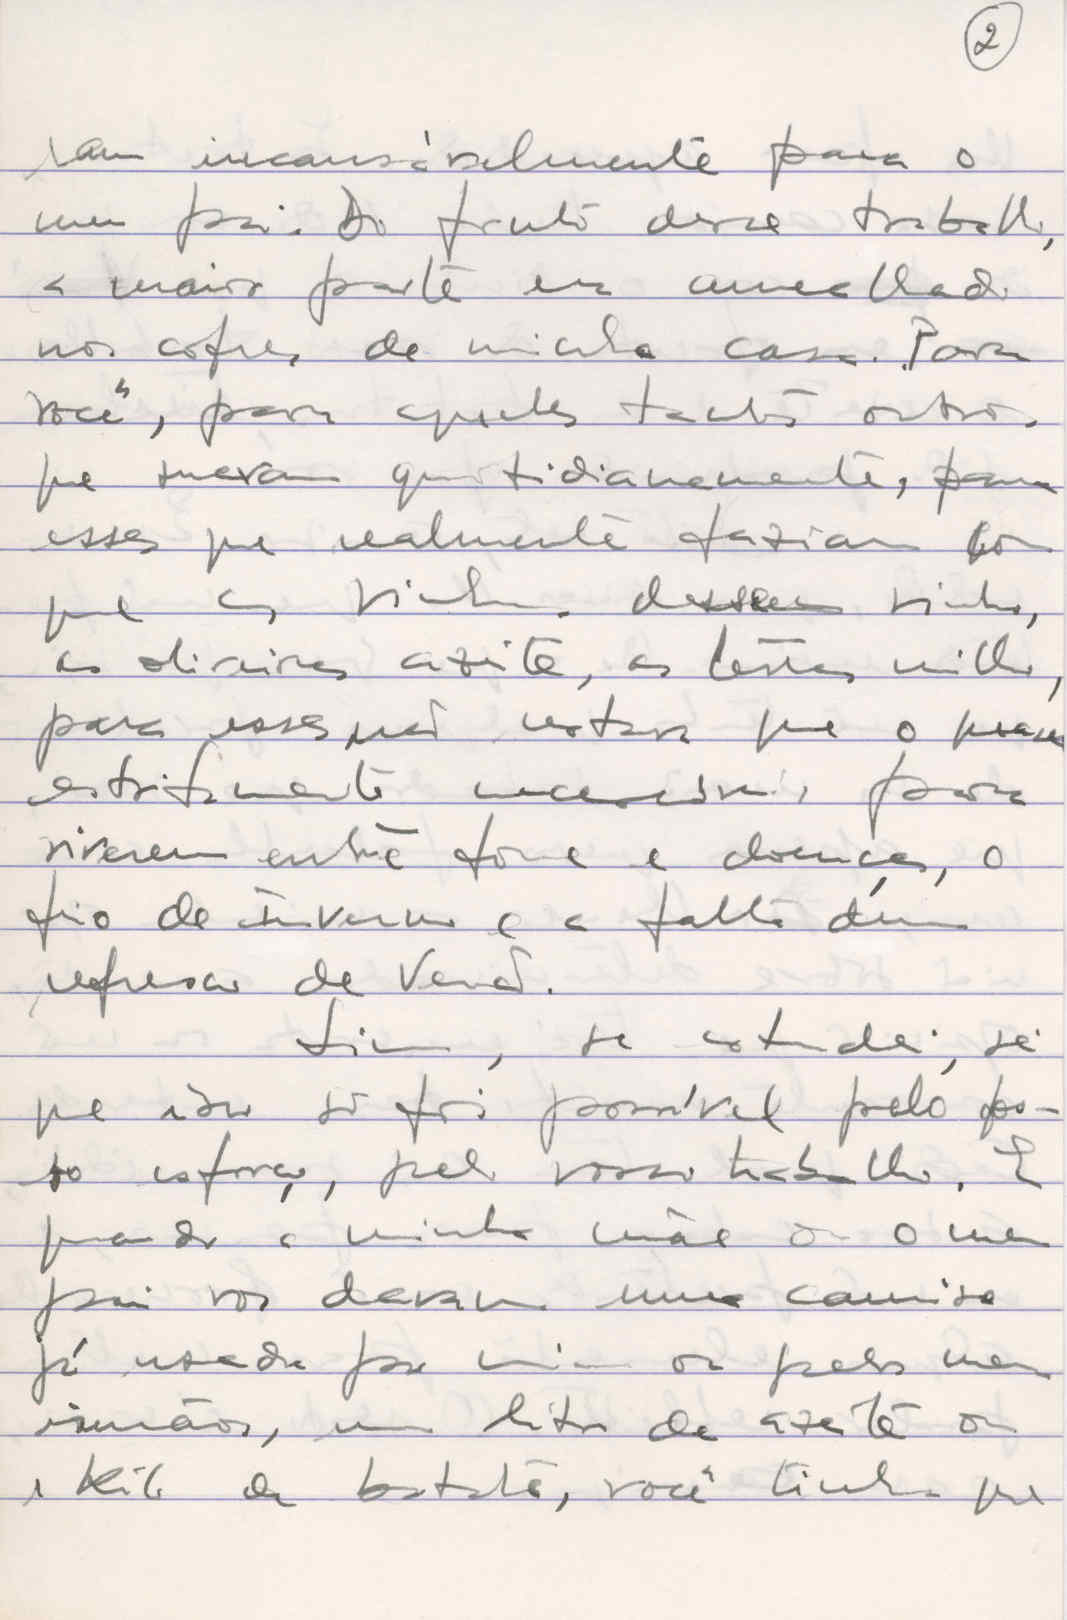 2
ram incansàvelmente para o
meu pai. Do fruto desse trabalho,
a maior parte era amealhada
nos cofres de minha casa. Para
você, para aqueles tantos outros
que suavam quotidianamente, para
esses que realmente faziam com
que as vinhas dessem vinho,
as oliveiras azeite, as terras milho,
para esses não restava que o quase
estritamente necessário para
viverem entre fome e doenças, o
frio de inverno e a falta dum
refresco de Verão.
Sim, se estudei, sei
que isso só foi possível pelo vos-
so esforço, pelo vosso trabalho. E
quando a minha mãe ou o meu
pai vos davam uma camisa
já usada por mim ou pelos meus
irmãos, um litro de azeite ou
1 kilo de batatas, você tinha que